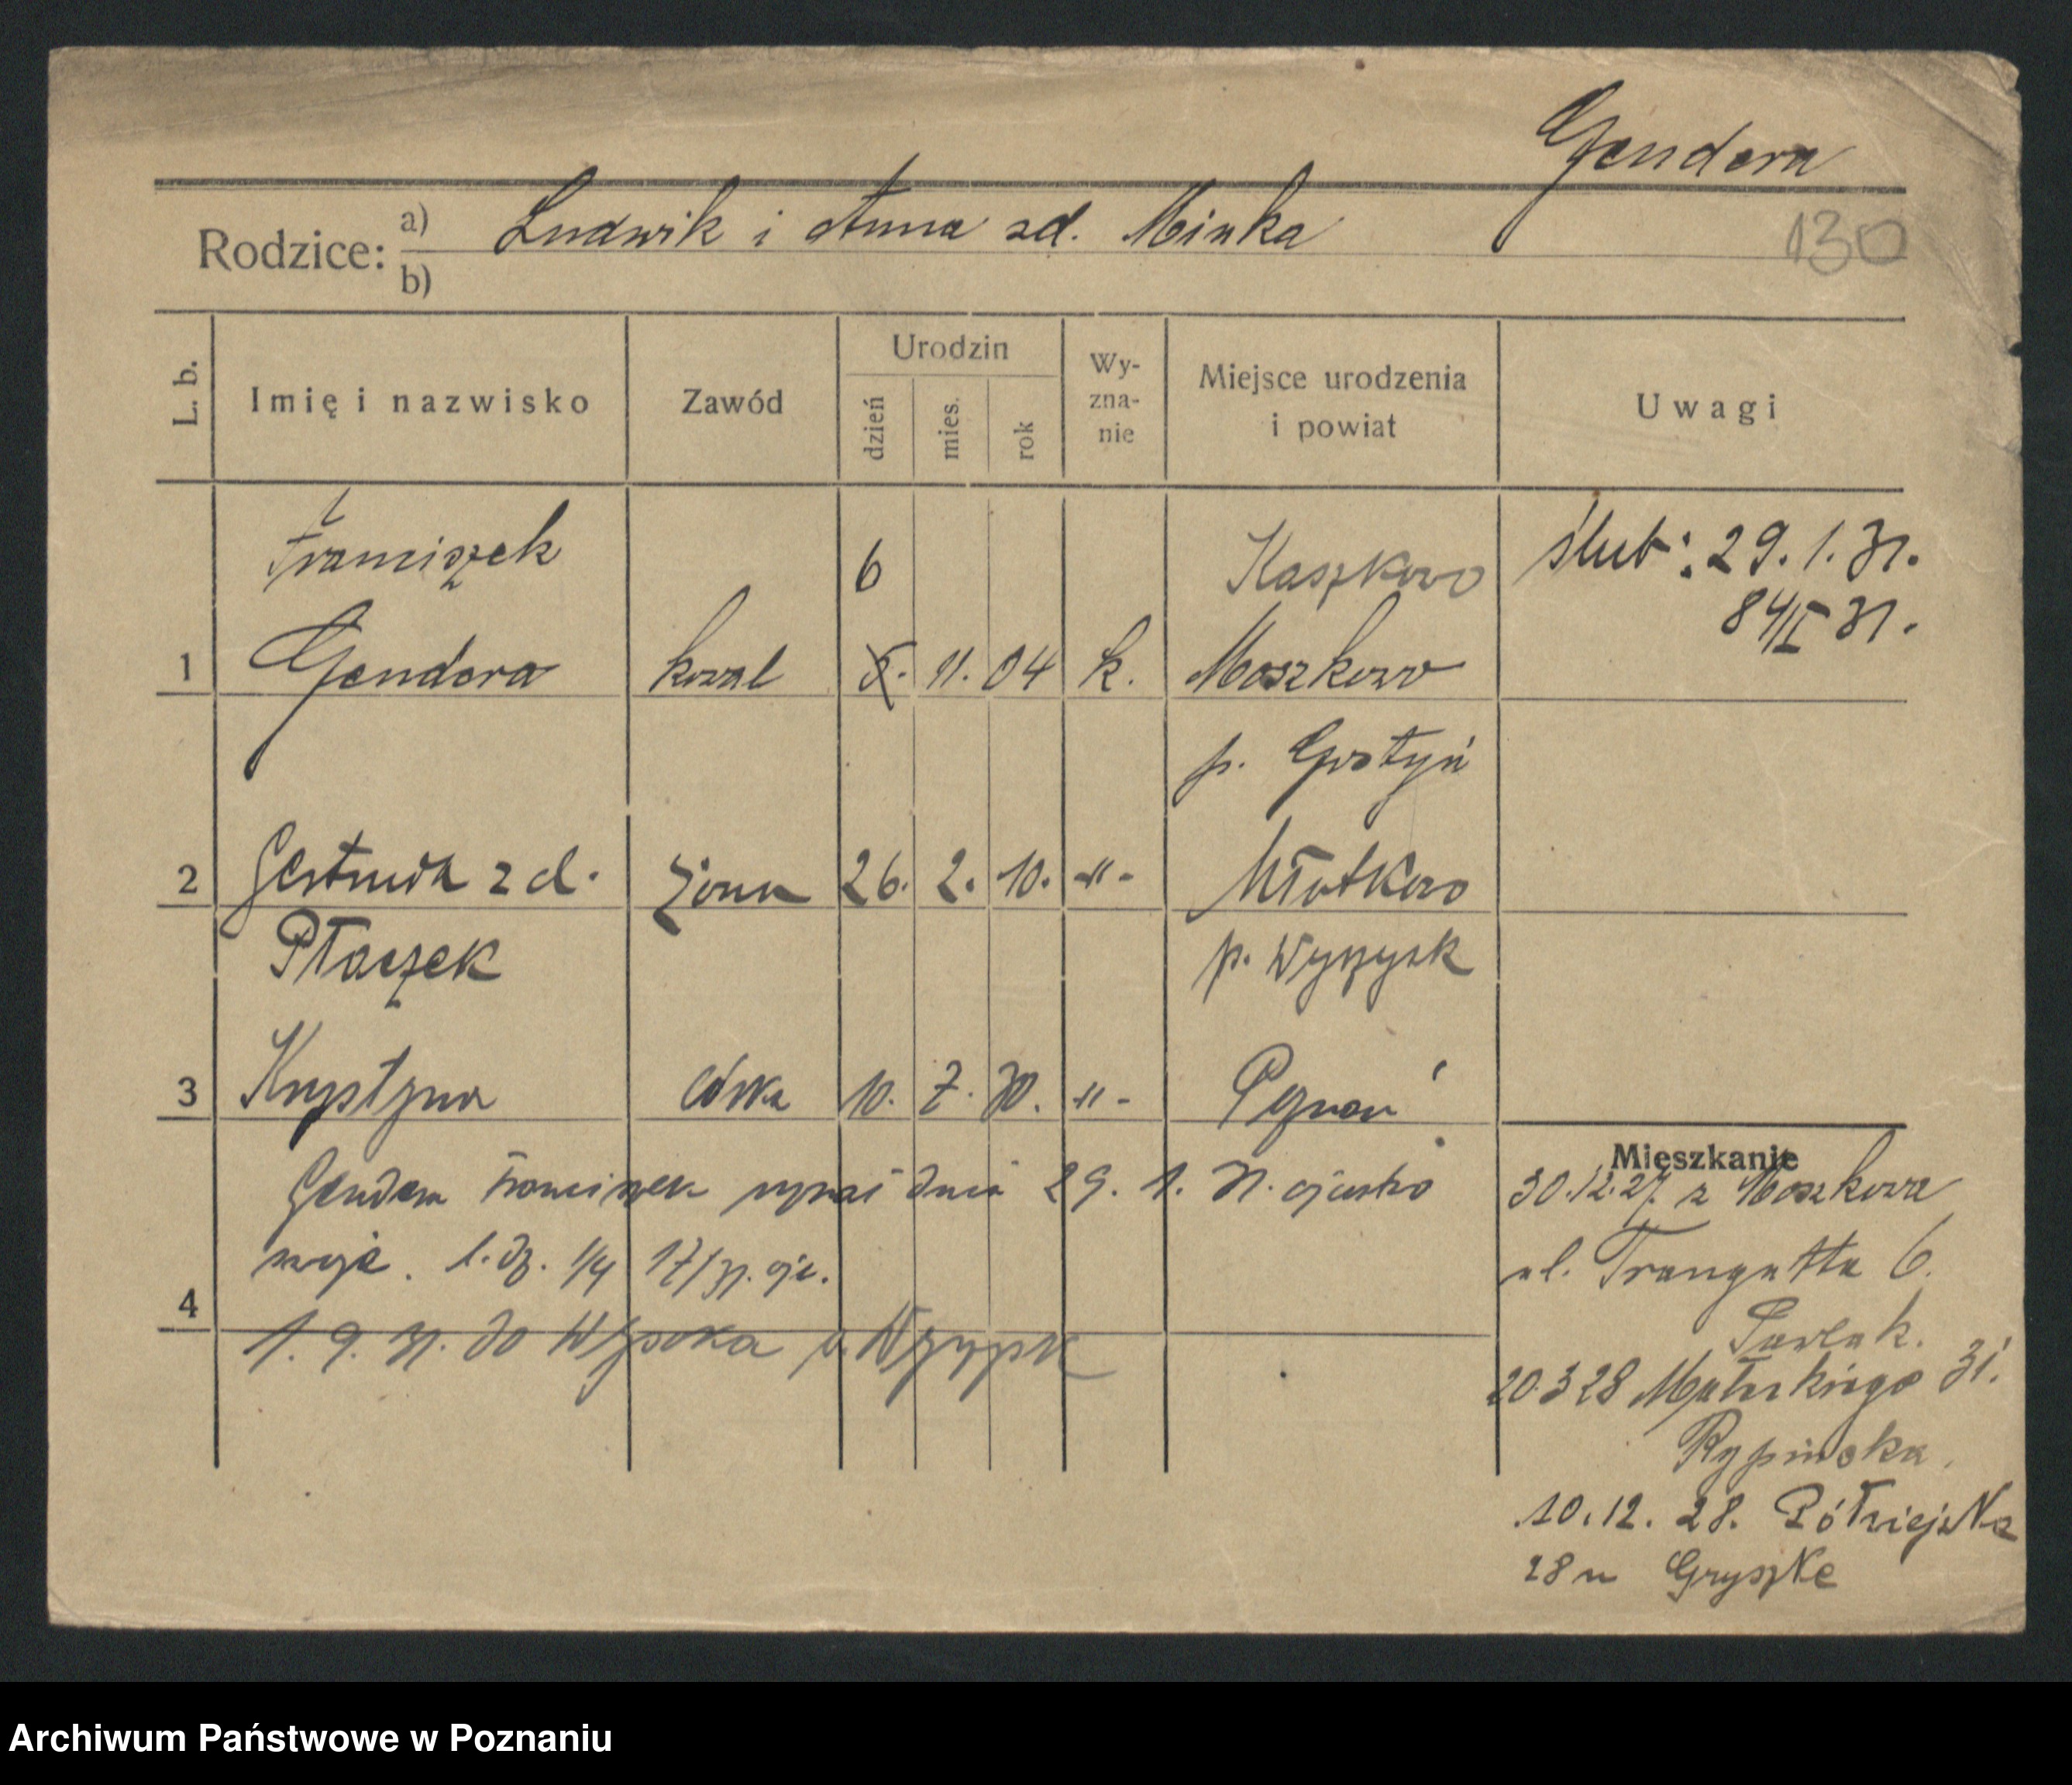 Gendera
130
Rodzice: a) Ludwik i Anna zd. Minka
b)
L. b. Imię i nazwisko Zawód Urodzin dzień mies. rok Wy-zna-nie Miejsce urodzenia i powiat Uwagi
Franciszek 6 Kaszkowo ślub: 29. 1. 31.
84/II 31.
1 Gendera kowal 5. 11. 04 k. Moszkowo
p. Gostyń
2 Gertruda z d. żona 26. 2. 10. -"- Młotkowo
Ptaczek p. Wyrzysk
3 Krystyna córka 10. 7. 30. -"- Poznań
Gendera Franciszek uznał dnia 29. 1. 31. ojcostwo
swoje. l. dz. 1/4 17/31.
4
1. 9. 31. do Wysoka p. Wyrzysk
Mieszkanie
30.12.27. z Moszkowa
ul. Traugutta 6.
Pawlak.
20.3 28 Mateckiego 31.
Rypinska.
10.12. 28. Półwiejska
28 u Gryszke
Archiwum Państwowe w Poznaniu